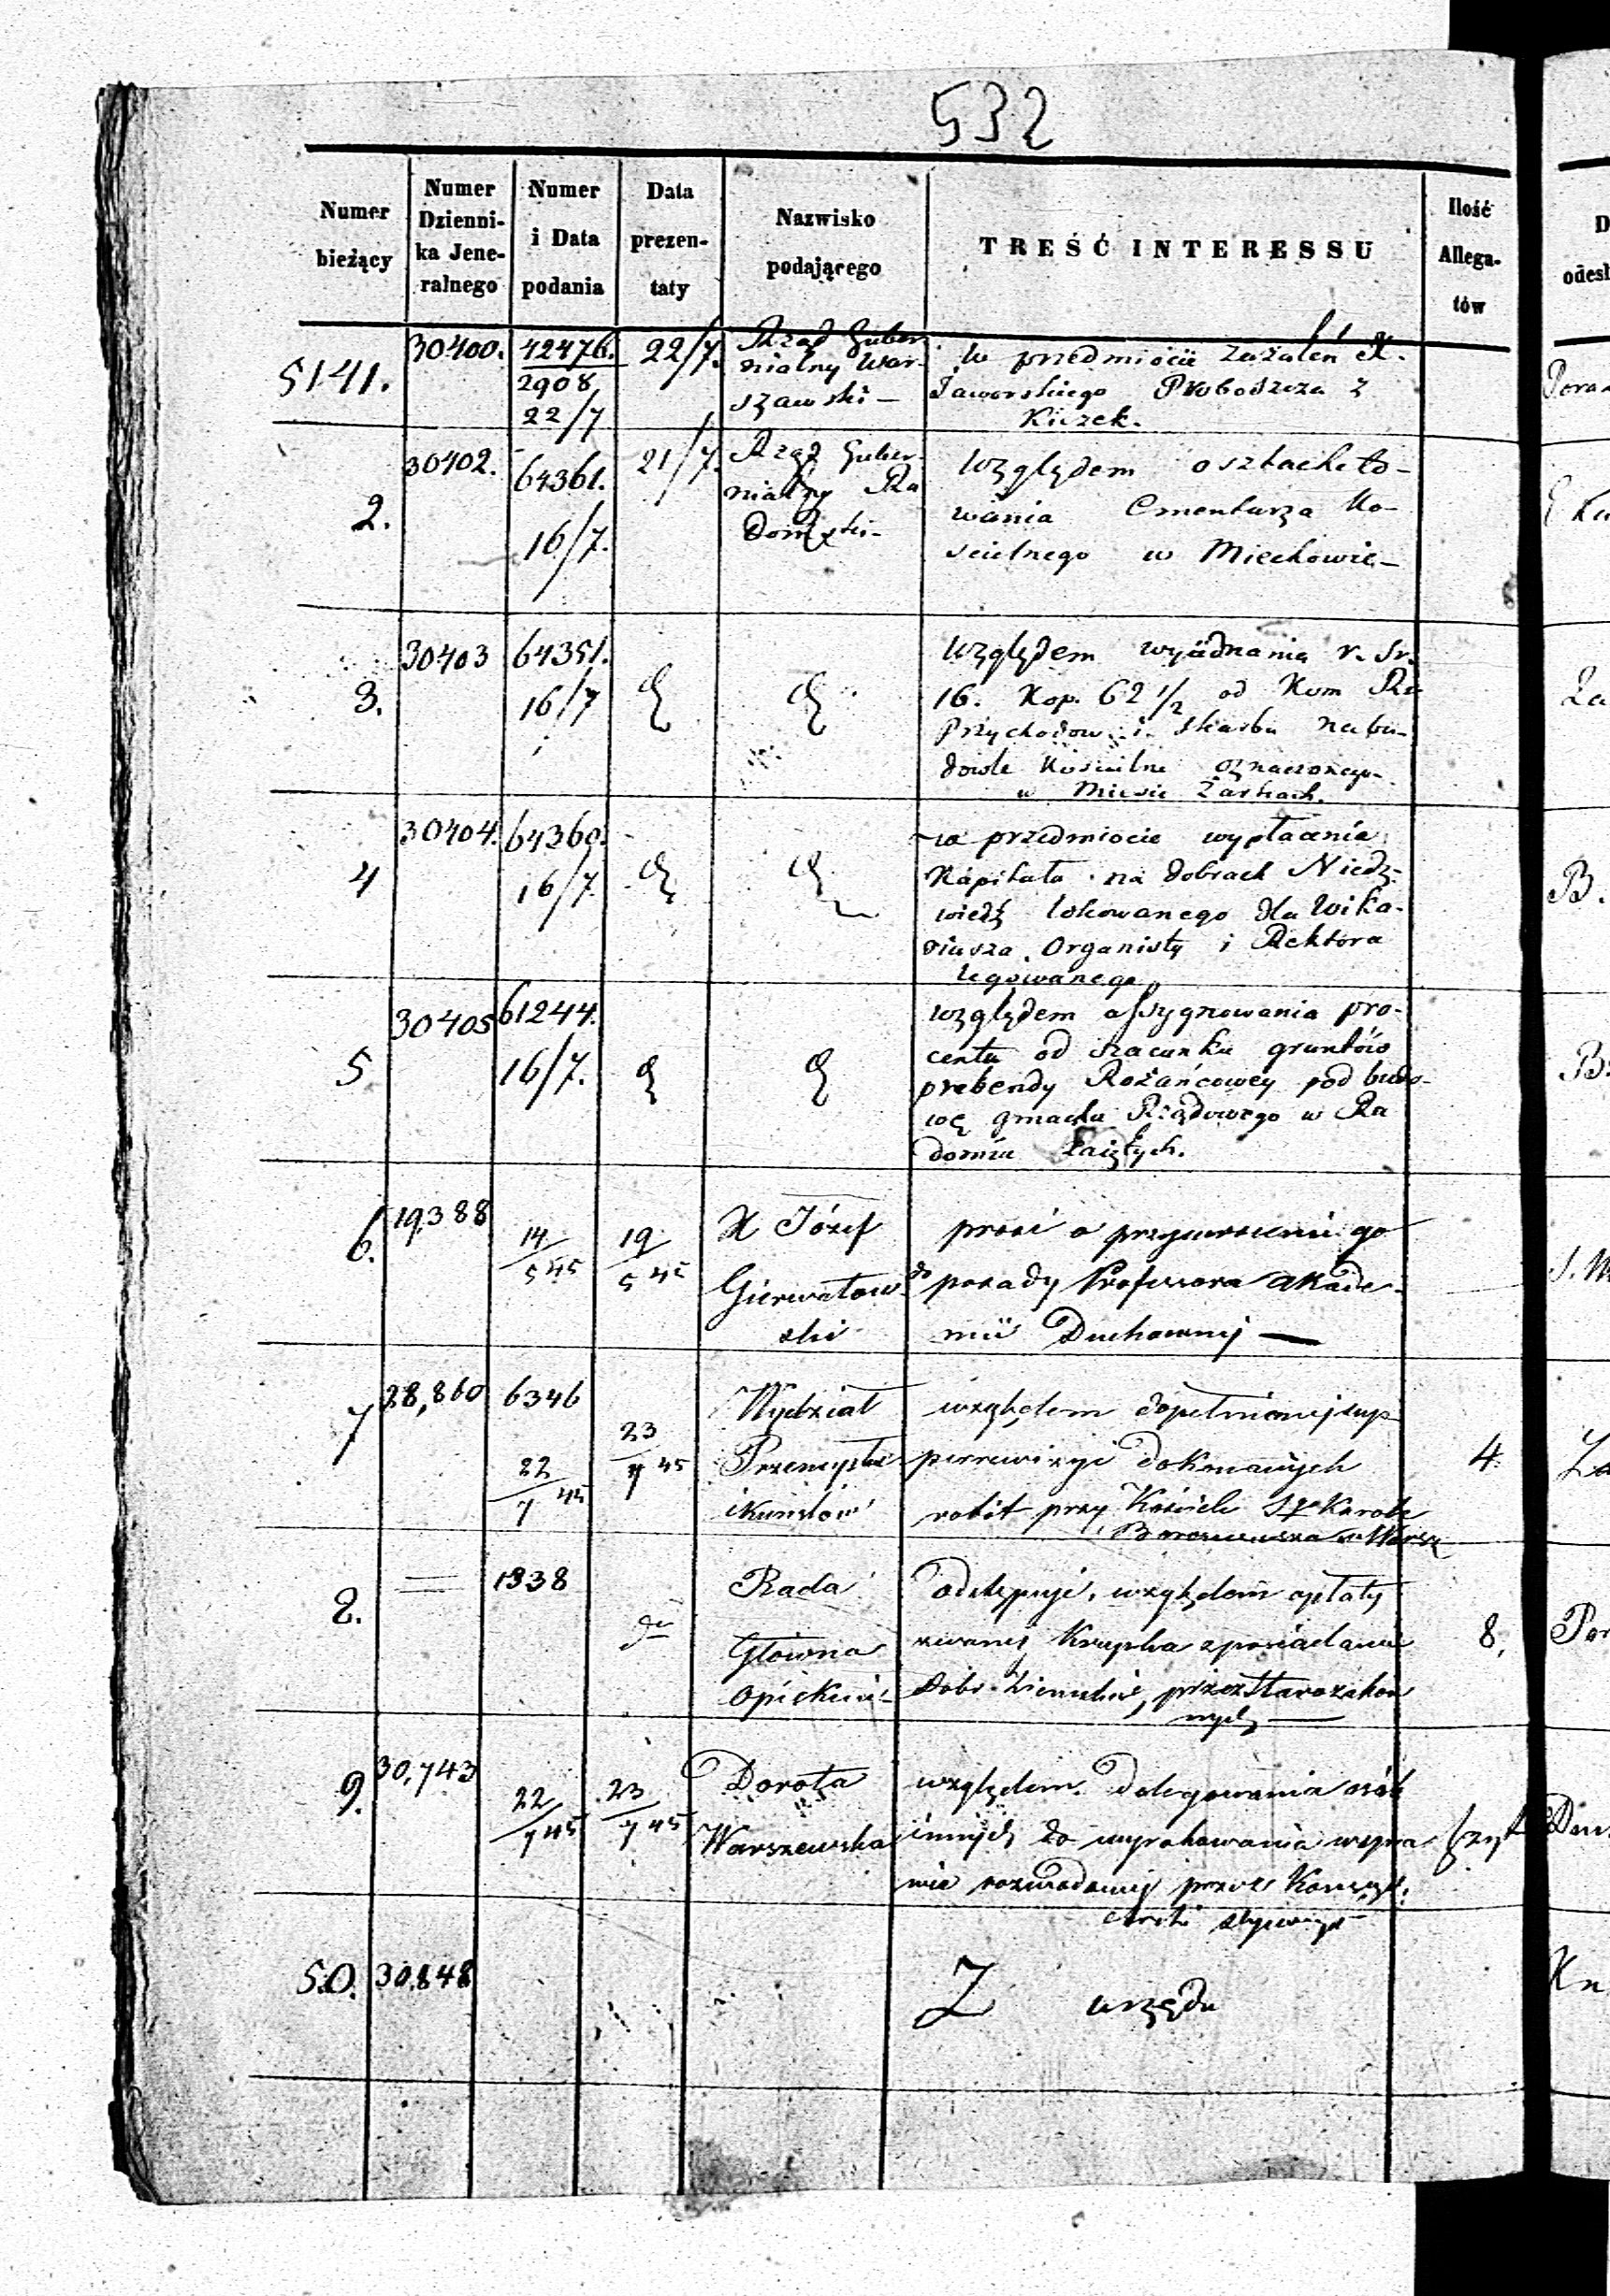 532
Numer bieżący
Numer Dzienni-ka Jene-ralnego
Numer i Data podania
Data prezen-taty
Nazwisko podającego
TREŚĆ INTERESSU
Ilość Allega-tów
5141.
30400.
42476.
2908
22/7
22/7.
Rząd Guber-
nialny War-
szawski —
w przedmiocie zażaleń X.
Jaworskiego Proboszcza z
Kiczek.
2.
30402.
64361.
16/7.
21/7.
Rząd Guber-
nialny Ra
domski-
względem osztacheto-
wania Cmentarza Ko-
scielnego w Miechowie-
3.
30403
64351.
16/7
względem wyjednania r. sr.
16. Kop. 62 1/2 od Kom Rz
Przychodow i Skarbu na bu-
dowle Koscielne oznaczonego
w Miescie Żarkach.
4
30404.
64360.
16/7.
w przedmiocie wypłacenia
Kapitału na dobrach Niedź-
wiedź lokowanego dla Wika-
riusza, Organisty i Rektora
legowanego
5
30405
61244.
16/7.
względem assygnowania pro-
centu od szacunku gruntów
prebendy Rożańcowey pod budo-
wę gmachu Rządowego w Ra
domiu zajętych.
6.
19388
14/5 45
19/5 45
X Józef
Gierwatow-
ski
prosi o przywrócenie go
do posady Professora Akade-
mii Duchownej —
7
28,860
6346
22/7 45
23/7 45
Wydział
Przemysłu
i Kunsztów
względem dopełnionej sup
perrewizyi dokonanych
robót przy Kościele Sgo Karola
Boromeusza w Warsz
4.
8.
1338
do
Rada
Główna
Opiekuń-
odstępuje, względem opłaty
zwanej Krupka z posiadania
Dobr Ziemskich przez Starozakon
nych —
8,
9.
30,743
22/7 45
23/7 45
Dorota
Warszewska
względem delegowania osób
innych do wyrokowania w spra
wie rozwodowej przez Konsyst.
50.
30,848
Z urzędu